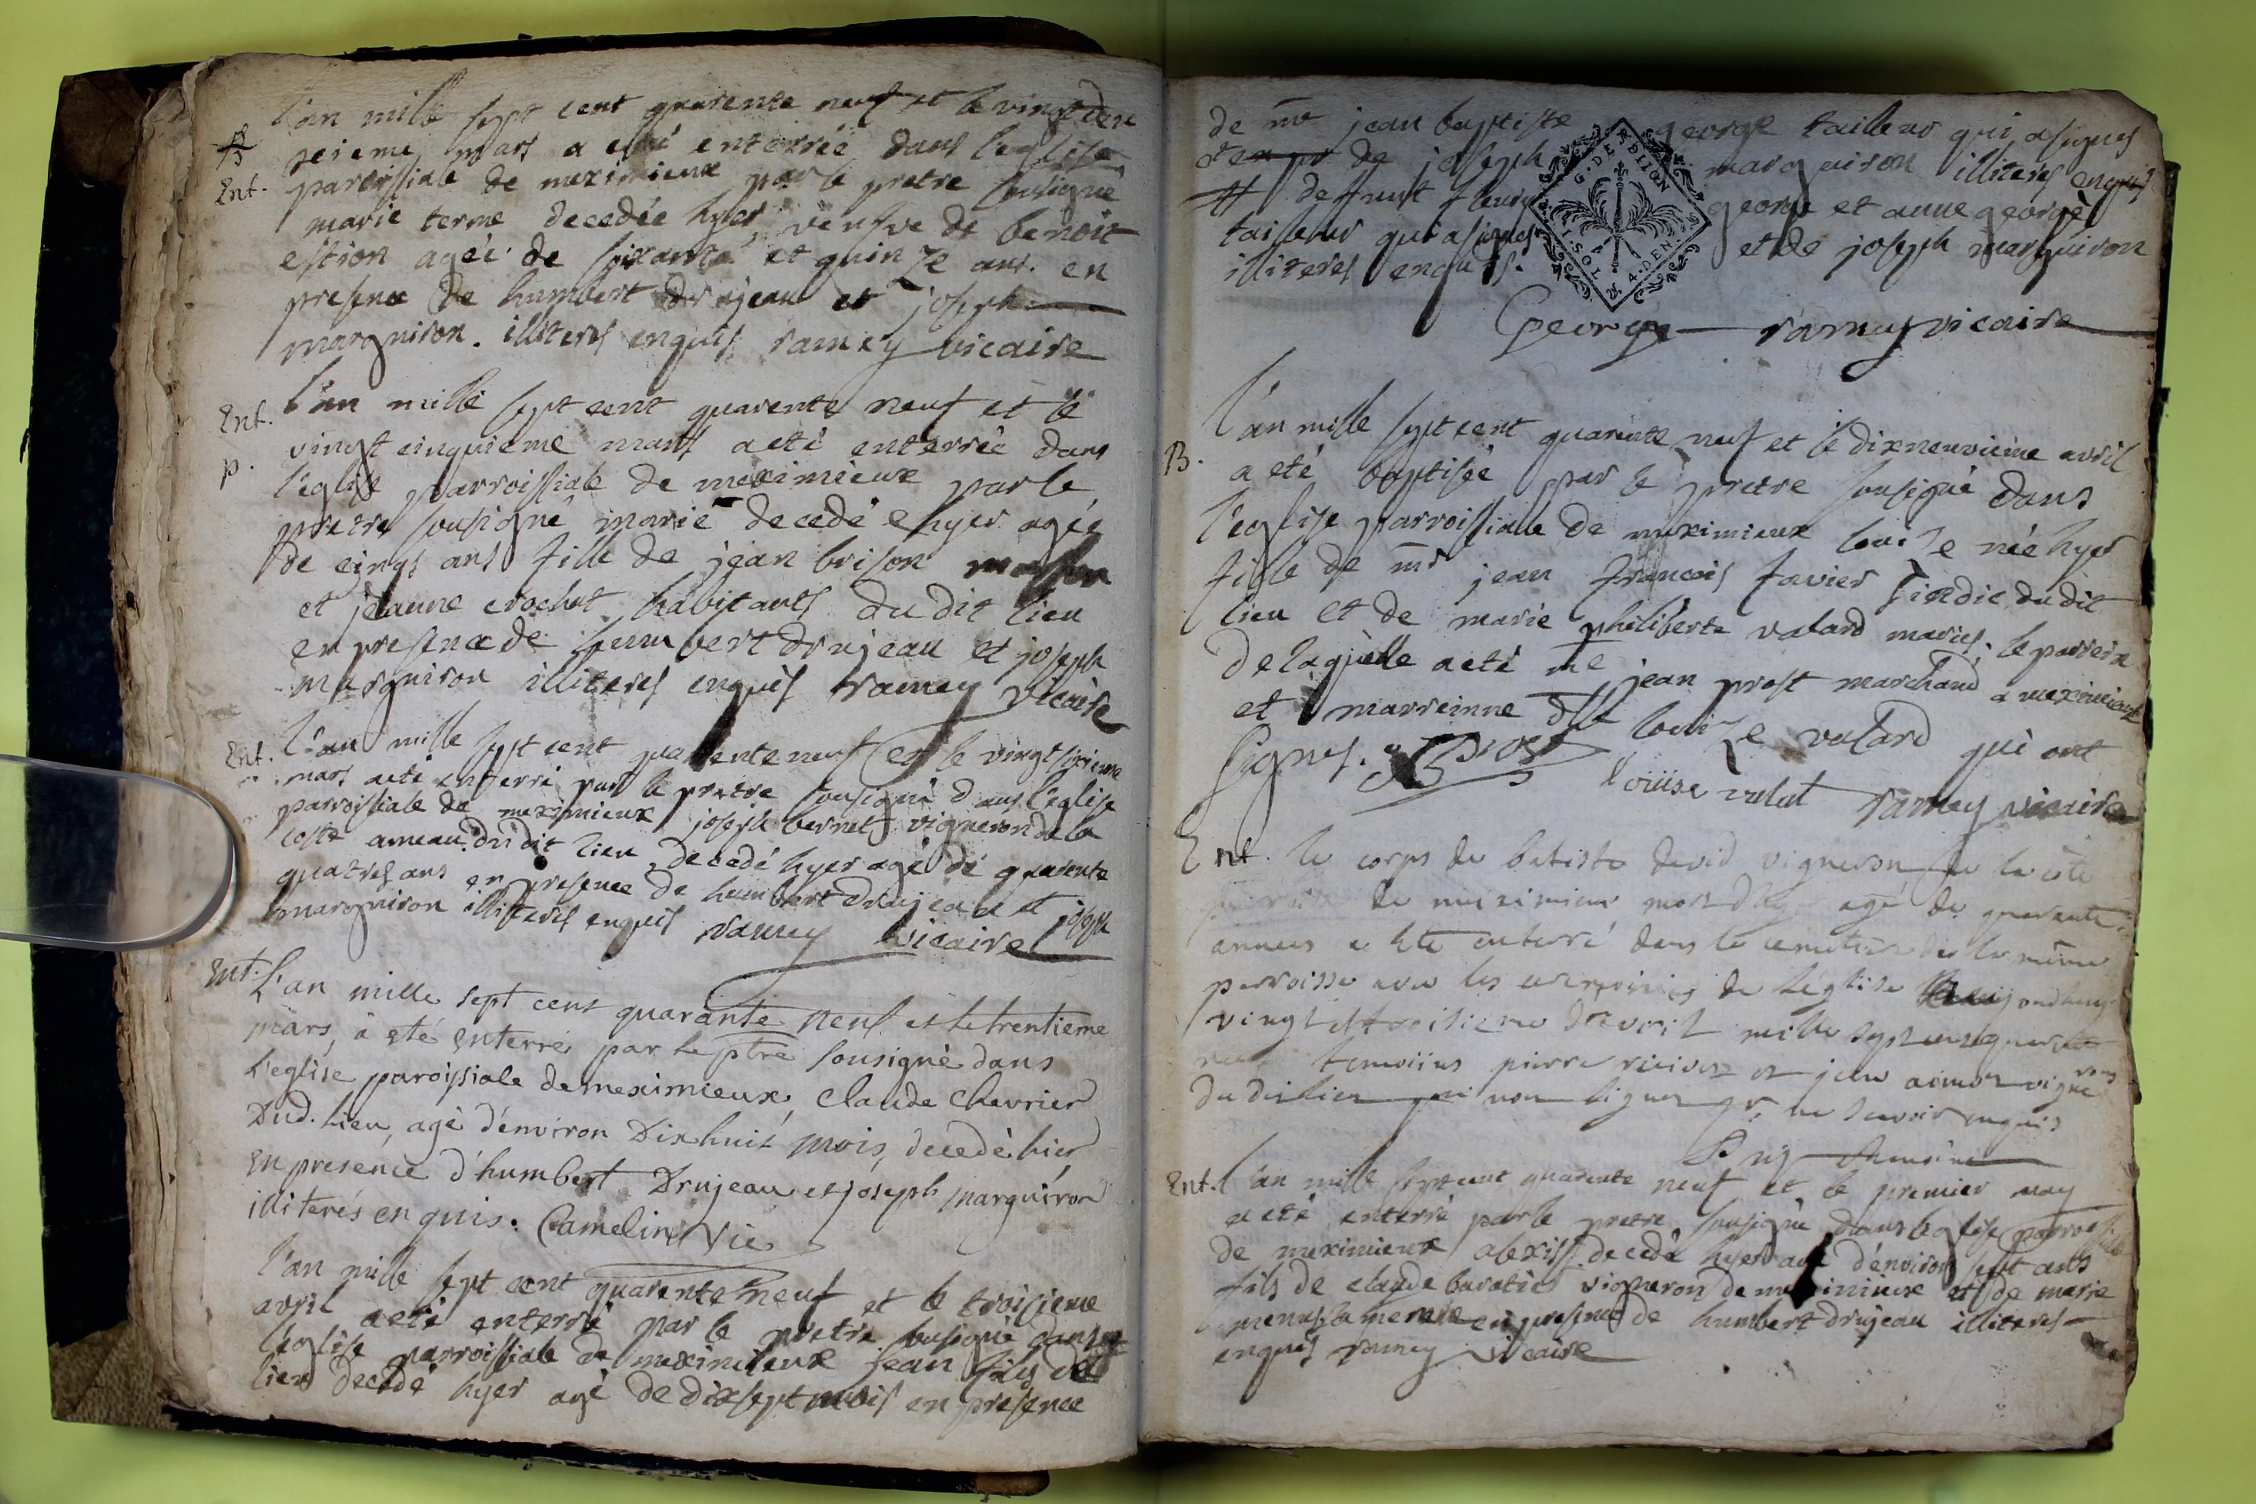 l'an mille sept cent quarente neuf et le vingt deu
xieme mars a eté enterrée dans l'eglise
Ent. parroissiale de meximieux par le pretre sousigné
marie terme decedée hyer, veufve de benoit
estion agée de soixante et quinze ans. en
presence de humbert drujeau et joseph
marguiron. illiterés enquis ramey vicaire
Ent. l'an mille sept cent quarente neuf et le
p. vingt cinquieme mars a eté enterrée dans
l'eglise parroissiale de meximieux par le
pretre sousigné marie decedée hyer agée
de cinqs ans fille de jean brison
et jeanne crochet habitants du dit lieu
en presence de humbert drujeau et joseph
marguiron illiterés enquis ramey vicaire
Ent. l'an mille sept cent quarente neuf et le vingt sixieme
mars a eté enterré par le pretre sousigné dans l'eglise
parroissiale de meximieux joseph bernet vigneron de la
coste ameau du dit lieu decedé hyer agé de quarente
quatres ans en presence de humbert drujeau et joseph
marguiron illiterés enquis ramey vicaire
Ent. L'an mille sept cent quarante neuf et le trentieme
mars, a eté enterré par le ptre sousigné dans
l'eglise paroissiale de meximieux, Claude Chevrier
Dud. lieu, agé d'environ Dix huit mois, decedé hier
en presence d'humbert Drujeau et joseph marguiron
illiterés enquis. Camelin Vic
l'an mille sept cent quarente neuf et le troisieme
avril a eté enterré par le pretre sousigné dans
l'eglise parroissiale de meximieux jean fils du
lieu decedé hyer agé de dix sept mois en presence
de mre jean baptiste george tailleur qui a signés
de joseph marguiron illiterés enquis
# deffunt fleury george et anne george
tailleur qui a signés et de joseph marguiron
illiterés enquis.
G. DE DIION
1. SOL 4. DEN.
George ramey vicaire
l'an mille sept cent quarente neuf et le dixneuvieme avril
B. a eté baptisée par le pretre sousigné dans
l'eglise parroissialle de meximieux louise née hyer
fille de mr jean francois favier sindic du dit
lieu et de marie philiberte valard mariés. le parrein
de laquelle a eté me jean prost marchand a meximieux
et marreinne dlle louise valard qui ont
signés. Prost Louise valat ramey vicaire
Ent. le corps de batiste david vigneron de la côte
de meximieux agé de quarante
annees a été enterré dans le cemetiere de la même
parroisse avec les ceremonies de l'église aujourdhuy
vingt et troisieme d'avril mille sept cens quarante
temoins pierre et jean vignerons
du dit lieu qui non signer pr ne savoir enquis
Ent. l'an mille sept cent quarente neuf et le premier may
a eté enterré par le pretre sousigné dans l'eglise parroissiale
de meximieux alexis decedé hyer agé d'environ sept ans
fils de claude baratier vigneron de meximieux et de marie
en presence de humbert drujeau illiterés
enquis ramey vicaire